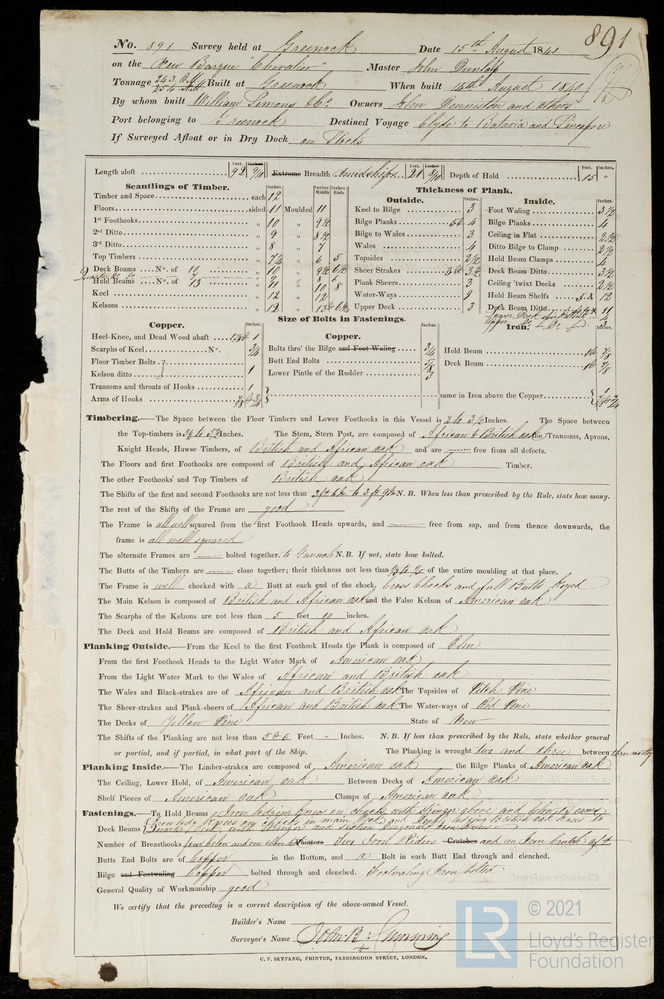 891
No. 891 Survey held at Greenock Date 15th August 1840
on the New Barque Chevalier Master John Dunlop
Tonnage Built at Greenock When built 14th August 1840
By whom built William Simons & Co. Owners John Denniston and others
Port belonging to Greenock Destined Voyage Clyde to Batavia and
If Surveyed Afloat or in Dry Dock on Stocks
Length aloft 92 Extreme Breadth Amidships 21 Depth of Hold 15
Scantlings of Timber.
Timber and Space each 12
Floors sided 11 Moulded 11
1st Foothooks " 10 "
2nd Ditto " 9 "
3rd Ditto " 8 " 7
Top Timbers
Deck Beams No. of 10 10
Hold Beams No. of 13
Keel " 12 " 12
Kelsons " 12
Thickness of Plank.
Outside.
Keel to Bilge 3
Bilge Planks 4
Bilge to Wales 3
Wales 4
Topsides 2½
Sheer Strakes
Plank Sheers 3
Water-Ways
Upper Deck 3
Inside.
Foot Waling
Bilge Planks 4
Ceiling in Flat 2½
Ditto Bilge to Clamp 2½
Hold Beam Clamps 4
Deck Beam Ditto 3½
Ceiling 'twixt Decks 2½
Hold Beam Shelfs 12
Deck Beam Ditto
Size of Bolts in Fastenings.
Copper.
Heel-Knee, and Dead Wood abaft
Scarphs of Keel No.
Floor Timber Bolts
Kelson ditto 1
Transoms and throats of Hooks 1
Arms of Hooks
Copper.
Bolts thro' the Bilge and Foot Waling ¾
Butt End Bolts
Lower Pintle of the Rudder 3
Iron.
Hold Beam ⅞
Deck Beam ⅞
same in Iron above the Copper
Timbering.—The Space between the Floor Timbers and Lower Foothooks in this Vessel is 2 to 3½ Inches. The Space between
the Top-timbers is Inches. The Stem, Stern Post, are composed of African & British oak the Transoms, Aprons,
Knight Heads, Hawse Timbers, of British and African oak and are free from all defects.
The Floors and first Foothooks are composed of British and African oak Timber.
The other Foothooks and Top Timbers of British oak
The Shifts of the first and second Foothooks are not less than N.B. When less than prescribed by the Rule, state how many.
The rest of the Shifts of the Frame are good
The Frame is all well squared from the first Foothook Heads upwards, and free from sap, and from thence downwards, the
frame is all well squared
The alternate Frames are bolted together to Gunwale N.B. If not, state how bolted.
The Butts of the Timbers are close together; their thickness not less than of the entire moulding at that place.
The Frame is well chocked with a Butt at each end of the chock, Cross Chocks and full Butts
The Main Kelson is composed of British and African oak and the False Kelson of American oak
The Scarphs of the Kelsons are not less than 5 feet 10 inches.
The Deck and Hold Beams are composed of British and African oak
Planking Outside.—From the Keel to the first Foothook Heads the Plank is composed of Elm
From the first Foothook Heads to the Light Water Mark of American oak
From the Light Water Mark to the Wales of African and British oak
The Wales and Black-strakes are of African and British oak The Topsides of Pitch Pine
The Sheer-strakes and Plank-sheers of African and British oak The Water-ways of Red Pine
The Decks of Yellow Pine State of New
The Shifts of the Planking are not less than 5 & 6 Feet " Inches. N.B. If less than prescribed by the Rule, state whether general
or partial, and if partial, in what part of the Ship. The Planking is wrought two and three between
Planking Inside.—The Limber-strakes are composed of American oak the Bilge Planks of American oak
The Ceiling, Lower Hold, of American oak Between Decks of American oak
Shelf Pieces of American oak Clamps of American oak
Fastenings.—To Hold Beams Iron
Deck Beams
Number of Breasthooks four below and one above Pointers Two Iron Riders Crutches and an Iron crutch aft
Butts End Bolts are of Copper in the Bottom, and a Bolt in each Butt End through and clenched.
Bilge and Footwaling Copper bolted through and clenched. Footwaling Iron bolted
General Quality of Workmanship good
We certify that the preceding is a correct description of the above-named Vessel.
Builder's Name
Surveyor's Name John R. Cumming
C. F. SKYFANG, PRINTER, FARRINGDON STREET, LONDON.
LR
© 2021
Lloyd's Register
Foundation